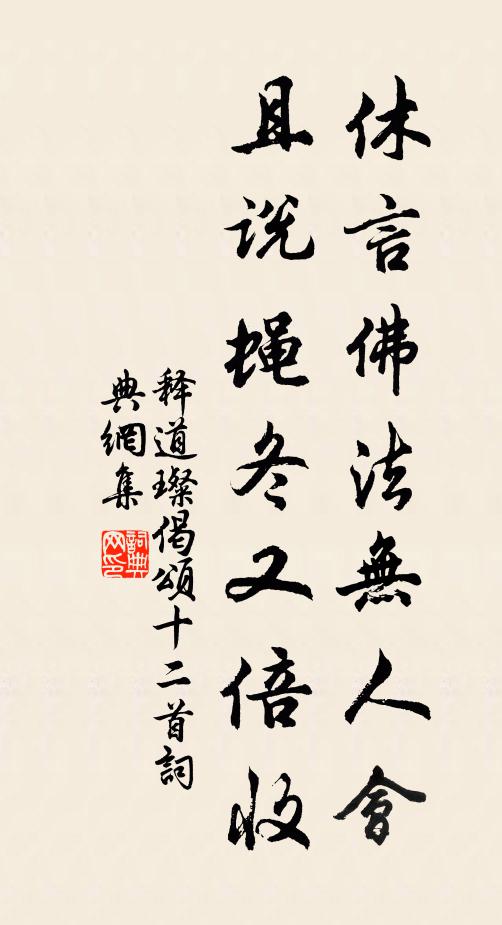 休言佛法無人會
且说蝇冬又倍收
释道璨偈頌十二首詞
典網集
詞典网印